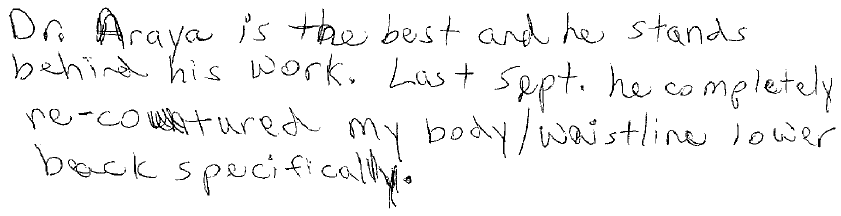 Dr. Araya is the best and he stands
behind his work. Last Sept. he completely
re-contured my body/waistline lower
back specifically.